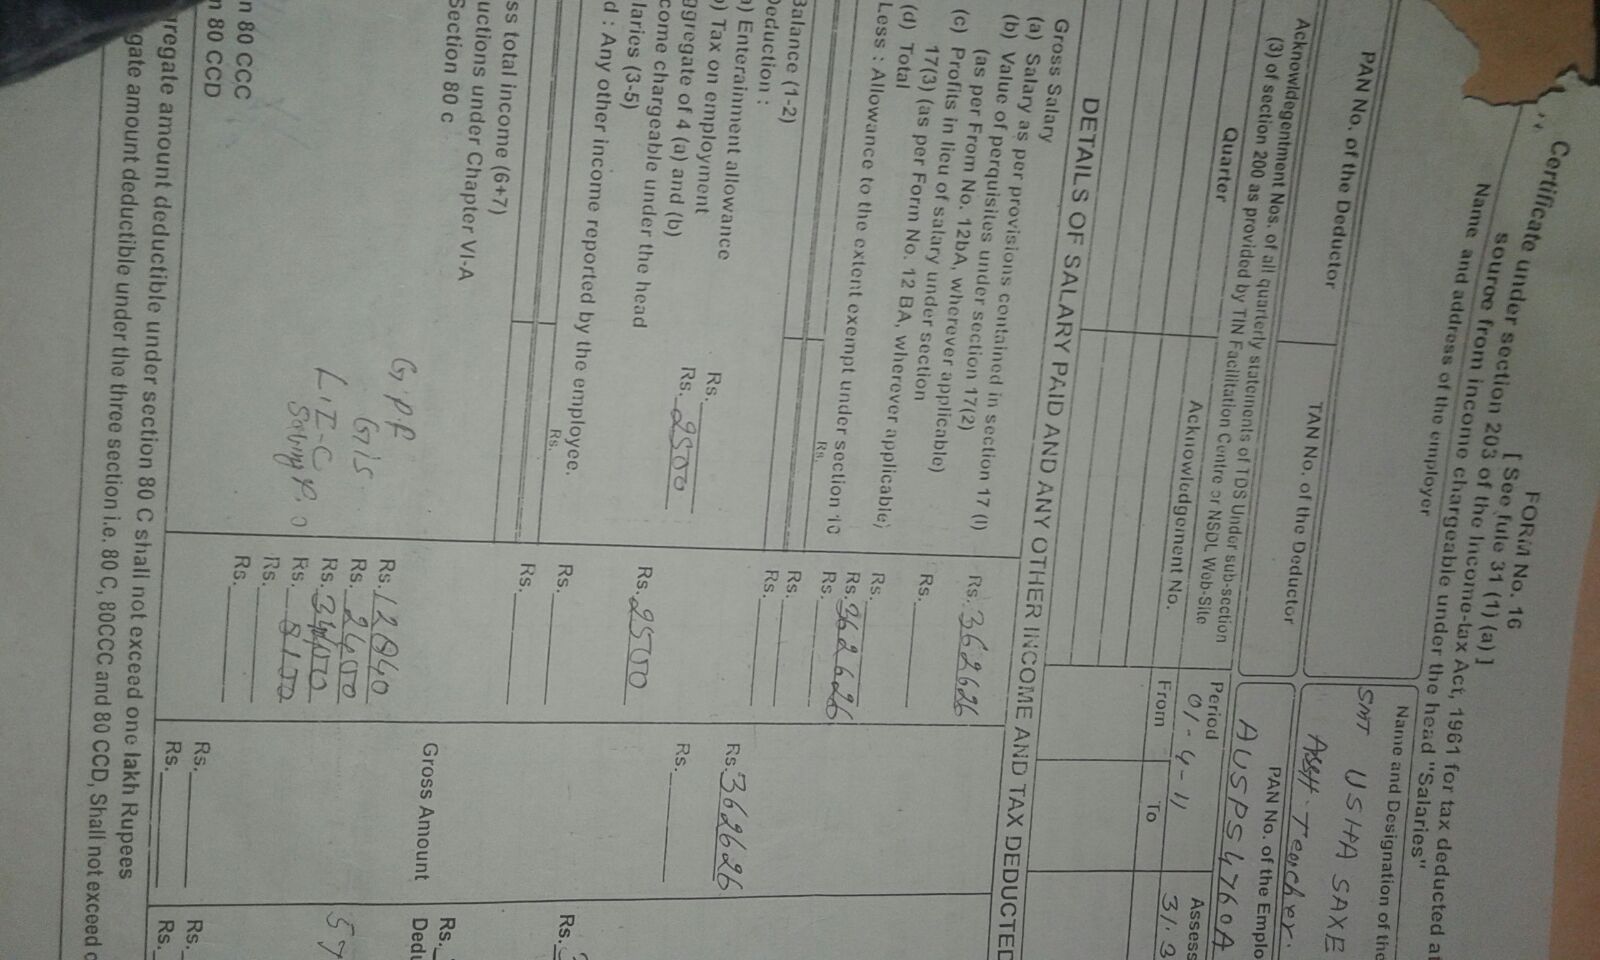 FORM No. 16
[ See fule 31 (1) (a) ]
Certificate under section 203 of the Income-tax Act, 1961 for tax deducted at
source from income chargeable under the head "Salaries"
Name and address of the employer
Name and Designation of the
SMT USHA SAXE
Asstt. Teacher.
PAN No. of the Deductor
TAN No. of the Deductor
PAN No. of the Emplo
AUSPS4760A
Acknowldegentment Nos. of all quarterly statements of TDS Under sub-section
(3) of section 200 as provided by TIN Facilitation Centre or NSDL Web-Site
Period
01-4-11
Assess
31.3
Quarter
Acknowledgement No.
From
To
DETAILS OF SALARY PAID AND ANY OTHER INCOME AND TAX DEDUCTED
Gross Salary
(a) Salary as per provisions contained in section 17 (I)
Rs. 362626
(b) Value of perquisites under section 17(2)
(as per From No. 12bA, wherever applicable)
Rs.
(c) Profits in lieu of salary under section
17(3) (as per Form No. 12 BA, wherever applicable)
Rs.
(d) Total
Rs. 362626
Less : Allowance to the extent exempt under section 10
Rs.
Rs.
Rs.
Rs.
Balance (1-2)
Rs. 362626
Deduction :
a) Enterainment allowance
Rs.
Rs.
b) Tax on employment
Rs. 2500
ggregate of 4 (a) and (b)
Rs. 2500
come chargeable under the head
laries (3-5)
Rs. 3
d : Any other income reported by the employee.
Rs.
Rs.
Rs.
ss total income (6+7)
Rs.
uctions under Chapter VI-A
Section 80 c
Gross Amount
Dedu
G.P.F
Rs. 12840
GIS
Rs. 2400
57
L.I.C
Rs. 34400
Saving P.
Rs. 8100
Rs.
Rs.
n 80 CCC
Rs.
Rs.
n 80 CCD
Rs.
Rs.
regate amount deductible under section 80 C shall not exceed one lakh Rupees
gate amount deductible under the three section i.e. 80 C, 80CCC and 80 CCD, Shall not exceed o